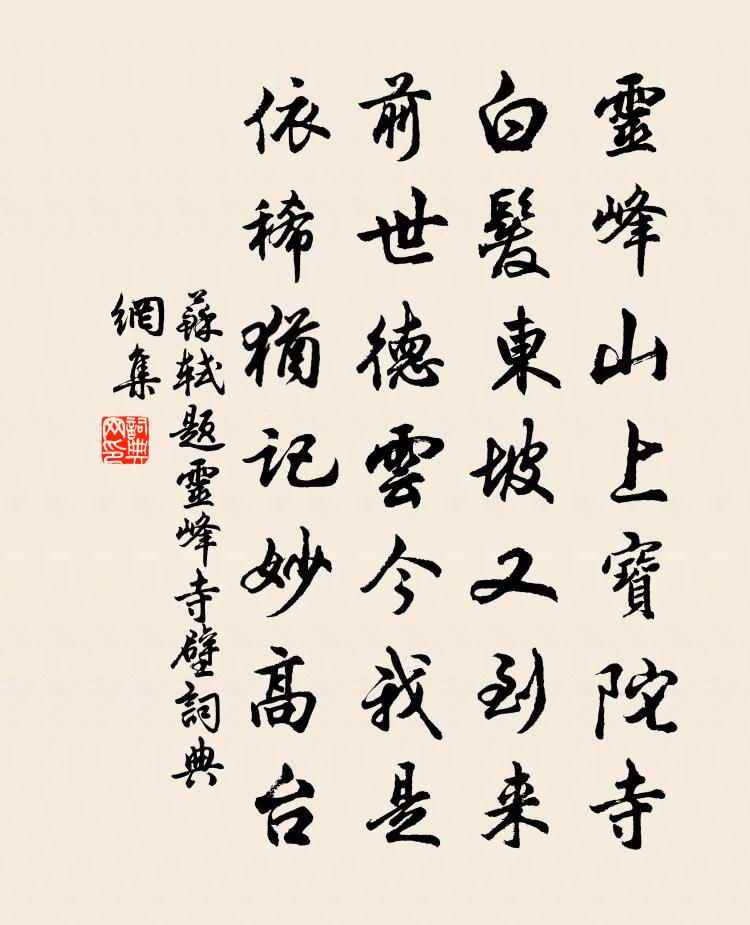 靈峰山上寶陀寺
白髮東坡又到来
前世德雲今我是
依稀猶記妙高台
蘇軾題靈峰寺壁詞典
網集
詞典
网印